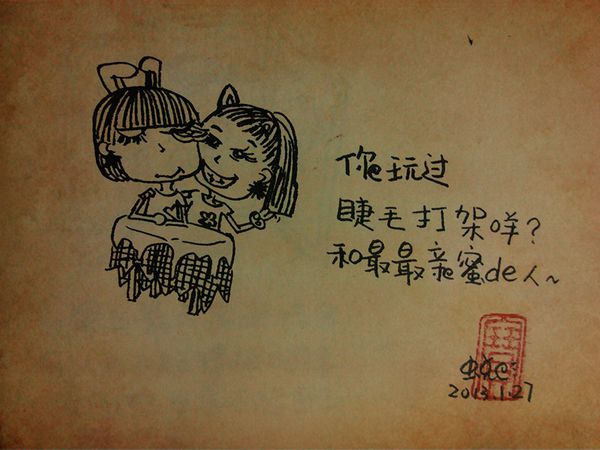 你玩过
睫毛打架咩?
和最最亲蜜de人~
2013.1.27